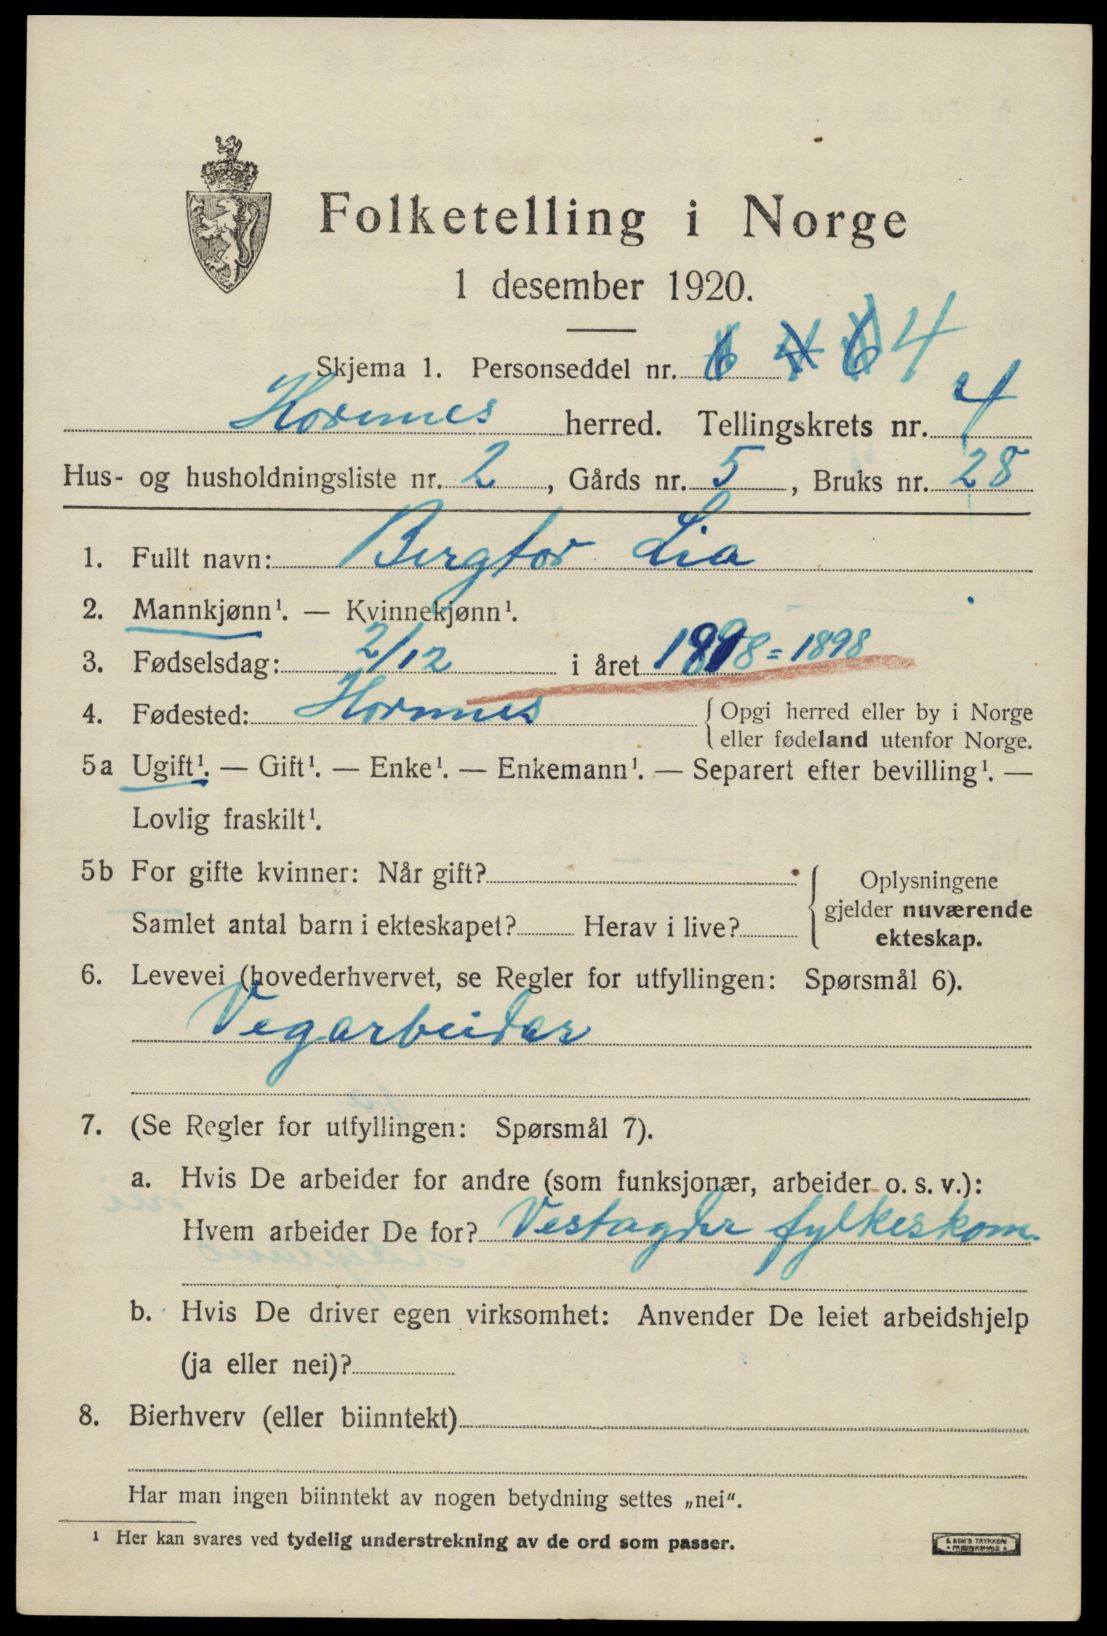 Folketelling i Norge
1 desember 1920.
Skjema 1. Personseddel nr. 6 4 6 4
Hornnes herred. Tellingskrets nr. 4
Hus- og husholdningsliste nr. 2, Gårds nr. 5, Bruks nr. 28
1. Fullt navn: Bergtor Lia
2. Mannkjønn¹. — Kvinnekjønn¹.
3. Fødselsdag: 2/12 i året 1898 = 1898
4. Fødested: Hornnes { Opgi herred eller by i Norge
eller fødeland utenfor Norge.
5a Ugift¹. — Gift¹. — Enke¹. — Enkemann¹. — Separert efter bevilling¹. —
Lovlig fraskilt¹.
5b For gifte kvinner: Når gift?
Samlet antal barn i ekteskapet? Herav i live?
{ Oplysningene
gjelder nuværende
ekteskap.
6. Levevei (hovederhvervet, se Regler for utfyllingen: Spørsmål 6).
Vegarbeider
7. (Se Regler for utfyllingen: Spørsmål 7).
a. Hvis De arbeider for andre (som funksjonær, arbeider o. s. v.):
Hvem arbeider De for? Vestagder fylkeskom.
b. Hvis De driver egen virksomhet: Anvender De leiet arbeidshjelp
(ja eller nei)?
8. Bierhverv (eller biinntekt)
Har man ingen biinntekt av nogen betydning settes „nei".
¹ Her kan svares ved tydelig understrekning av de ord som passer.